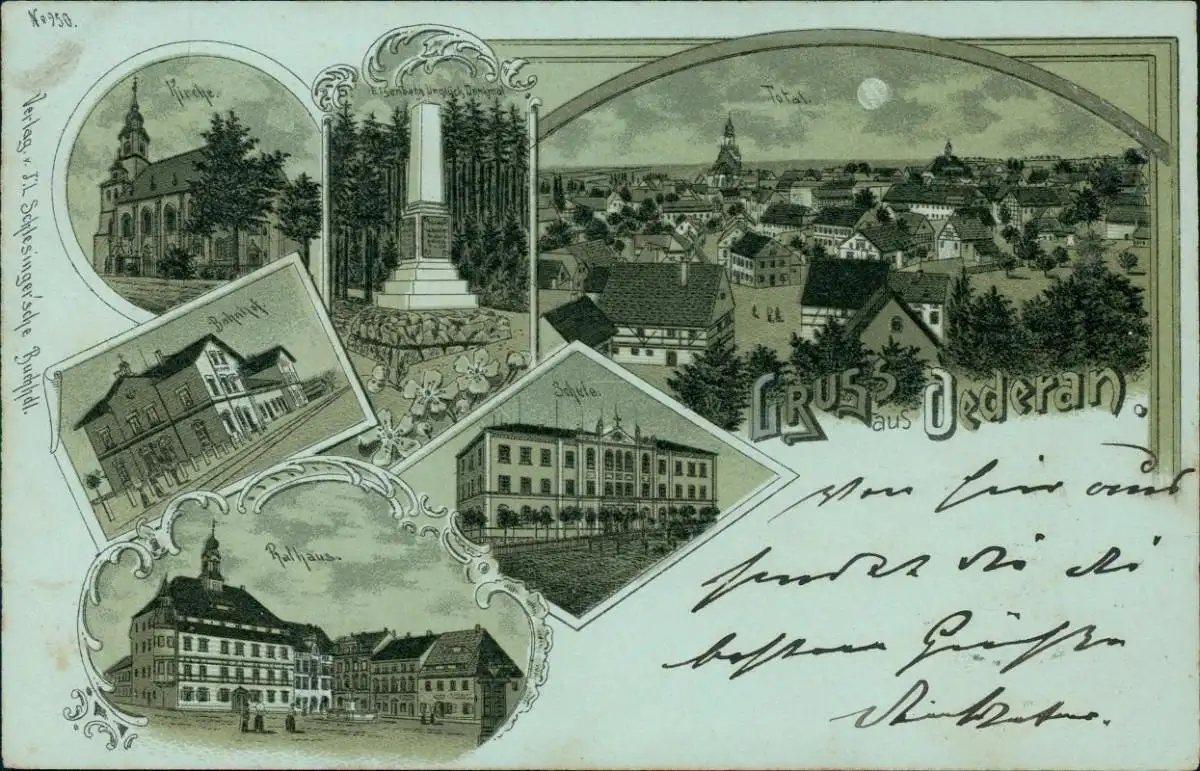 No 950.
Verlag v. F. L. Schlesinger'sche Buchhdl.
Kirche.
Eisenbahn Unglück Denkmal
Total.
Bahnhof
Schule.
Rathaus.
Gruss aus Oederan.
Von hier aus
sendet dir die
besten Grüße